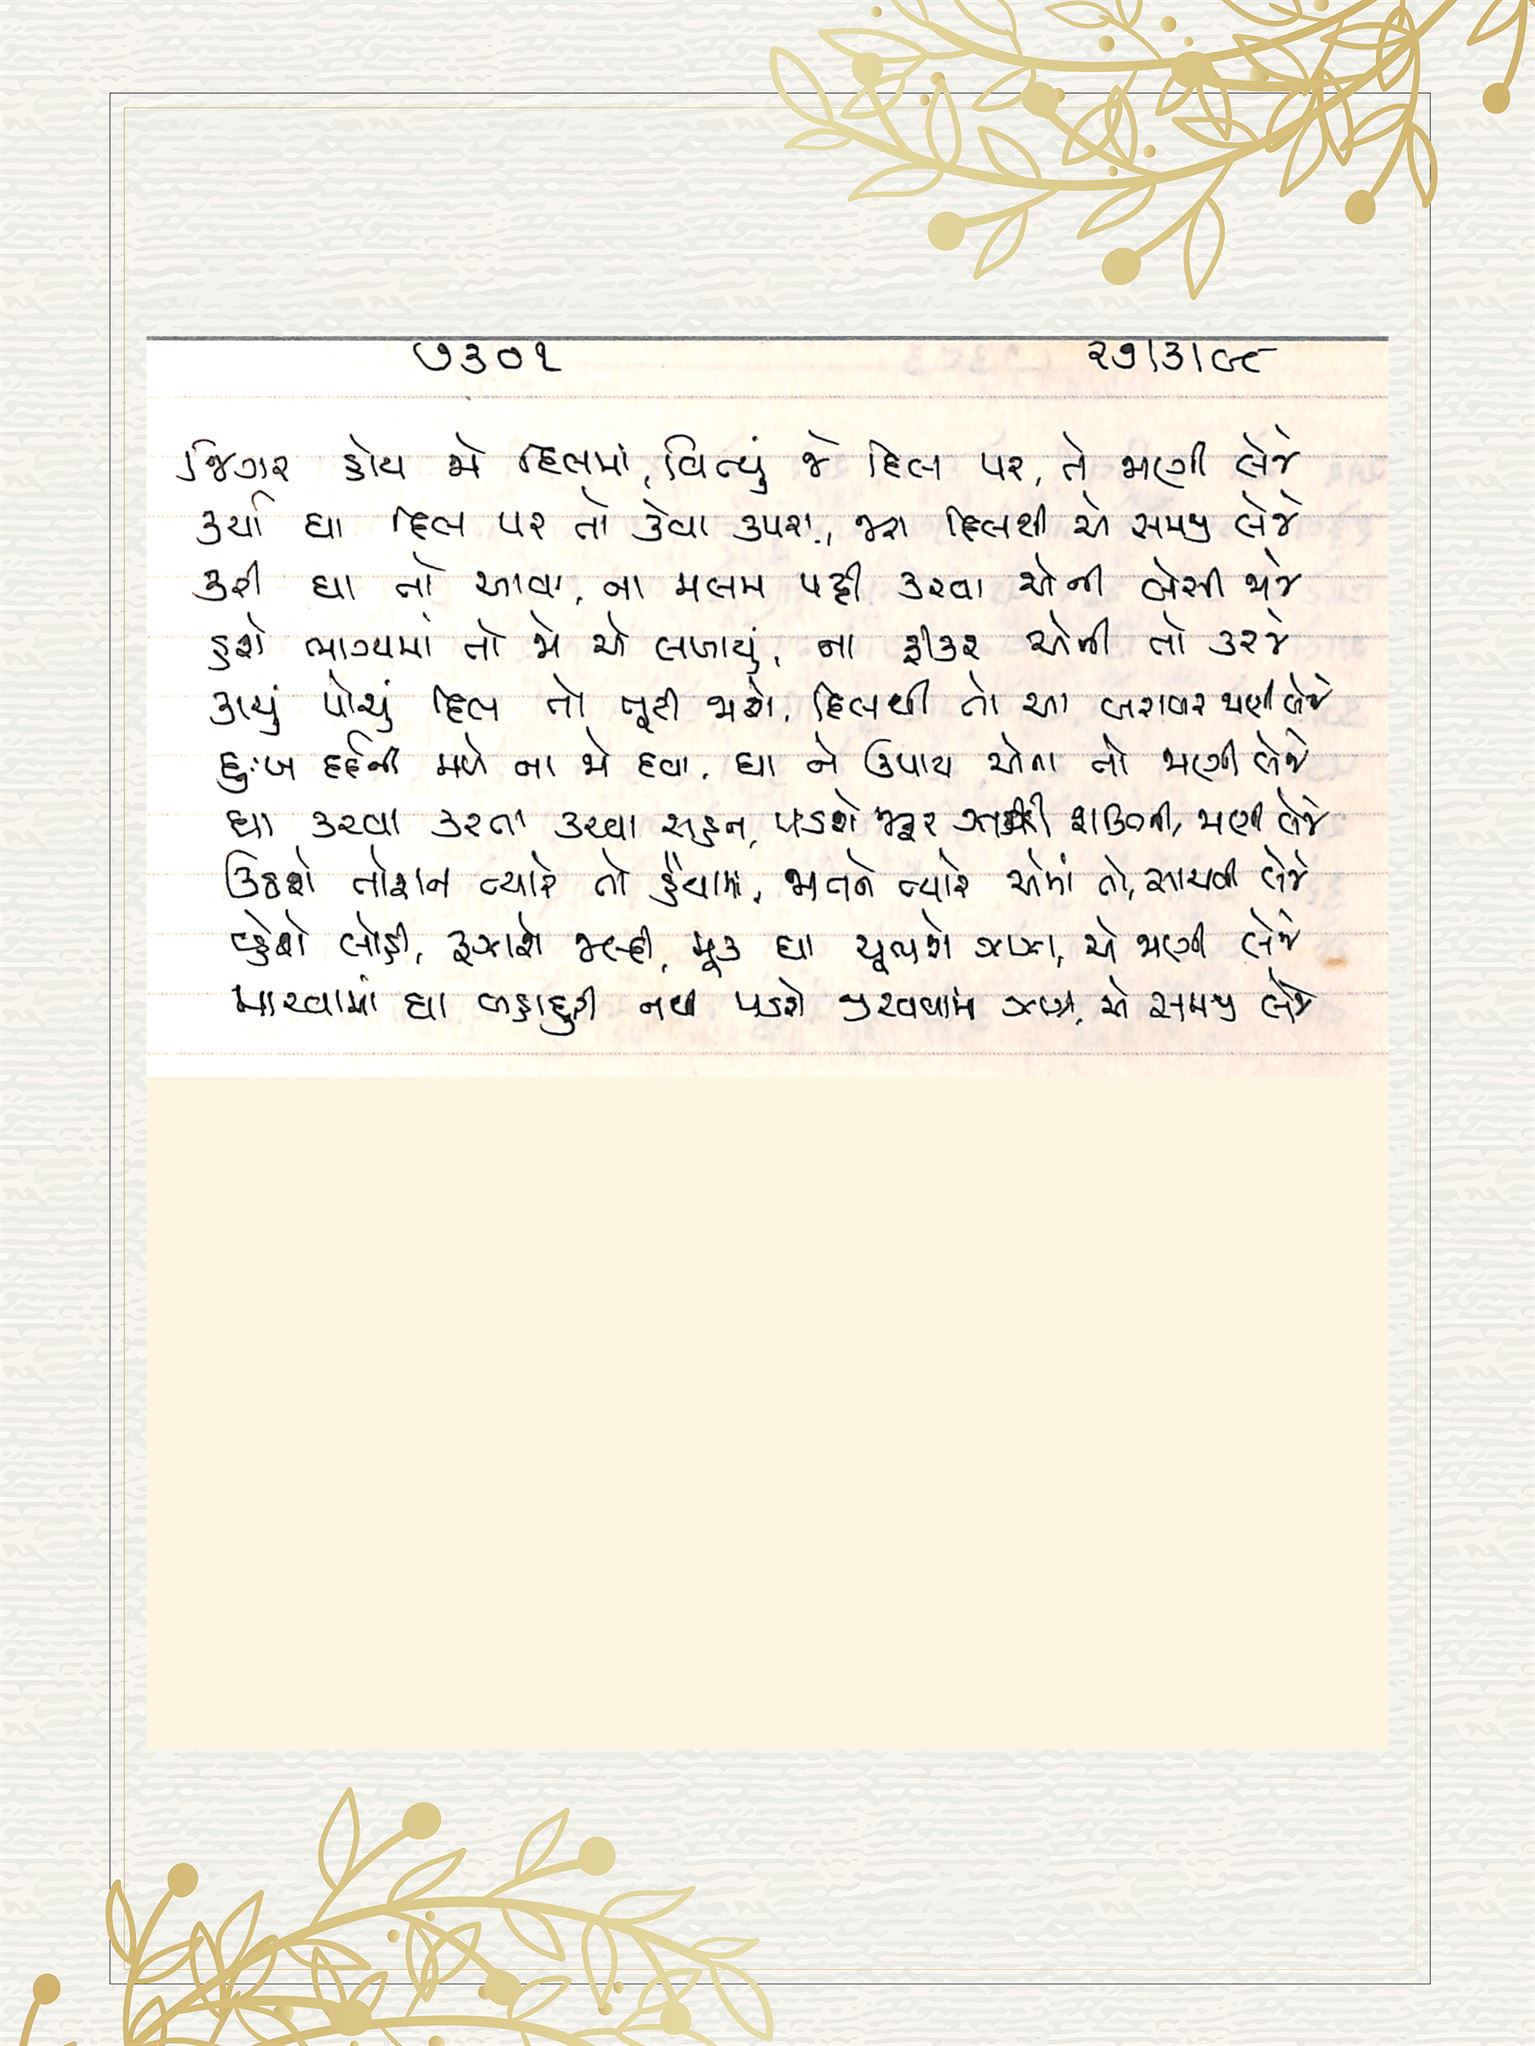 ૭૩૦૧ ૨૭/૩/૯૮
જિગર હોય જો દિલમાં, વિત્યું જે દિલ પર, તે જાણી લેજે
કર્યા ઘા દિલ પર તો કેવા કપરા, જરા દિલથી એ સમજી લેજે
કરી ઘા તો આવા, ના મલમ પટ્ટી કરવા એની બેસી જાજે
હશે ભાગ્યમાં તો જો એ લખાયું, ના ફીકર એની તો કરજે
કાચું પોચું દિલ તો તૂટી જાશે, દિલથી તો આ બરાબર જાણી લેજે
દુઃખ દર્દની મળે ના જો દવા, ઘા ને ઉપાય એના તો જાણી લેજે
ઘા કરવા કરતા કરવા સહન, પડશે જરૂર શક્તિની, જાણી લેજે
ઊઠશે તોફાન ત્યારે તો હૈયામાં, જાતને ત્યારે એમાં તો, સાચવી લેજે
વ્હેશે લોહી, રૂઝાશે જલ્દી, મૂક ઘા ચૂભશે ઝાઝા, એ જાણી લેજે
મારવામાં ઘા બહાદુરી નથી પડશે જીરવવામાં, એ સમજી લેજે